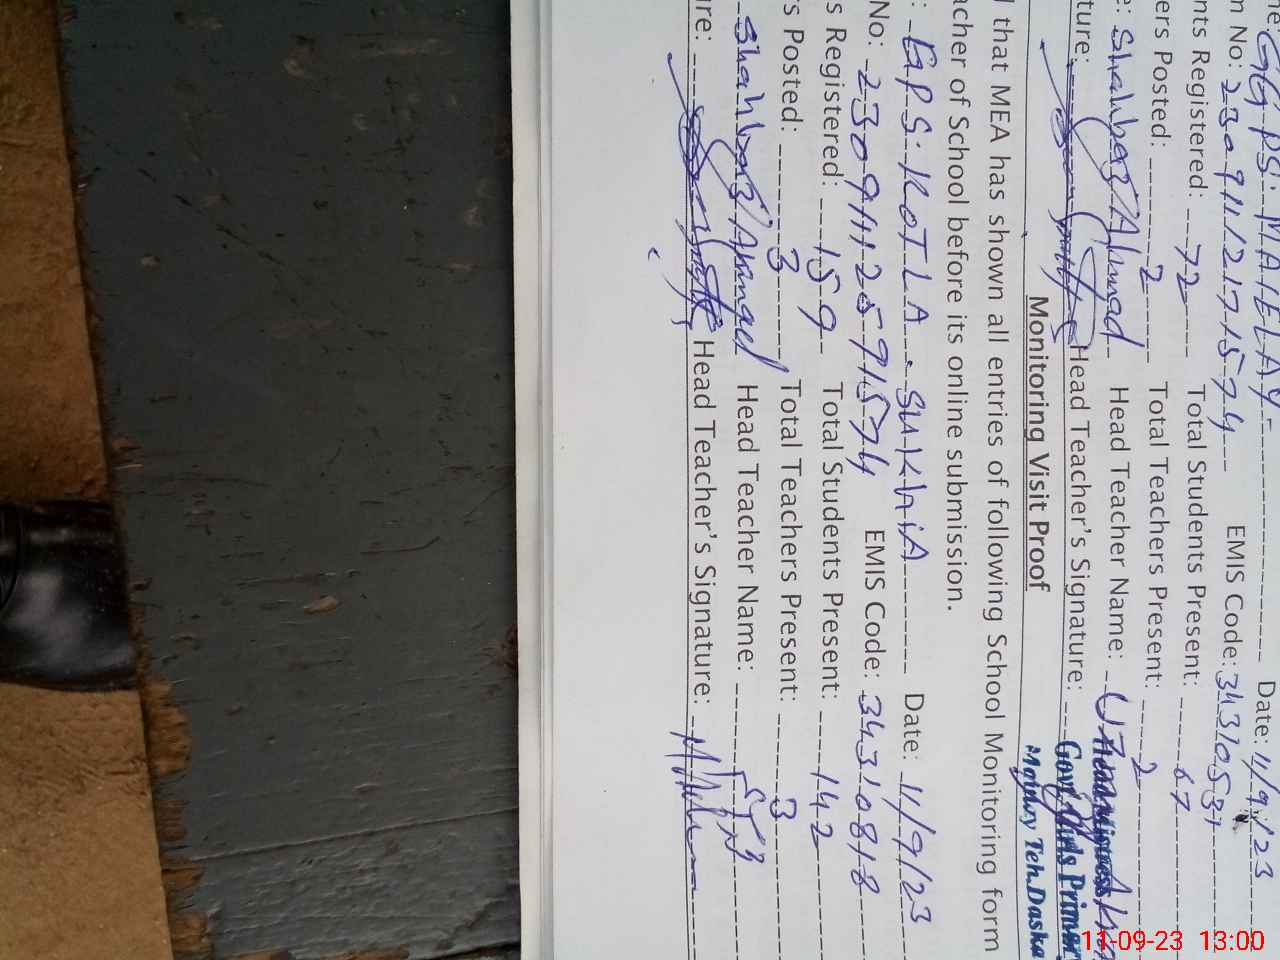 GGPS. MALELAY Date: 11/9/23
No: 23091112171574 EMIS Code: 34310531
nts Registered: 72 Total Students Present: 67
ers Posted: 2 Total Teachers Present: 2
Shahbaz Ahmad Head Teacher Name:
ture: Head Teacher's Signature:
Govt Girls Primary
Teh.Daska
Monitoring Visit Proof
that MEA has shown all entries of following School Monitoring form
acher of School before its online submission.
GPS. KOTLA. SUKhiA Date: 11/9/23
No: 2309111257 1574 EMIS Code: 34310818
s Registered: 159 Total Students Present: 142
s Posted: 3 Total Teachers Present: 3
Shahbaz Ahmad Head Teacher Name:
re: Head Teacher's Signature:
11-09-23 13:00